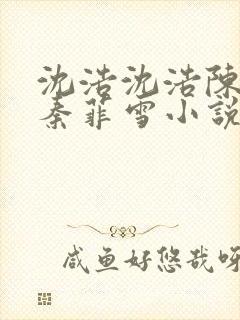 沈浩沈浩陳
秦菲雪小說
咸鱼好悠哉呀